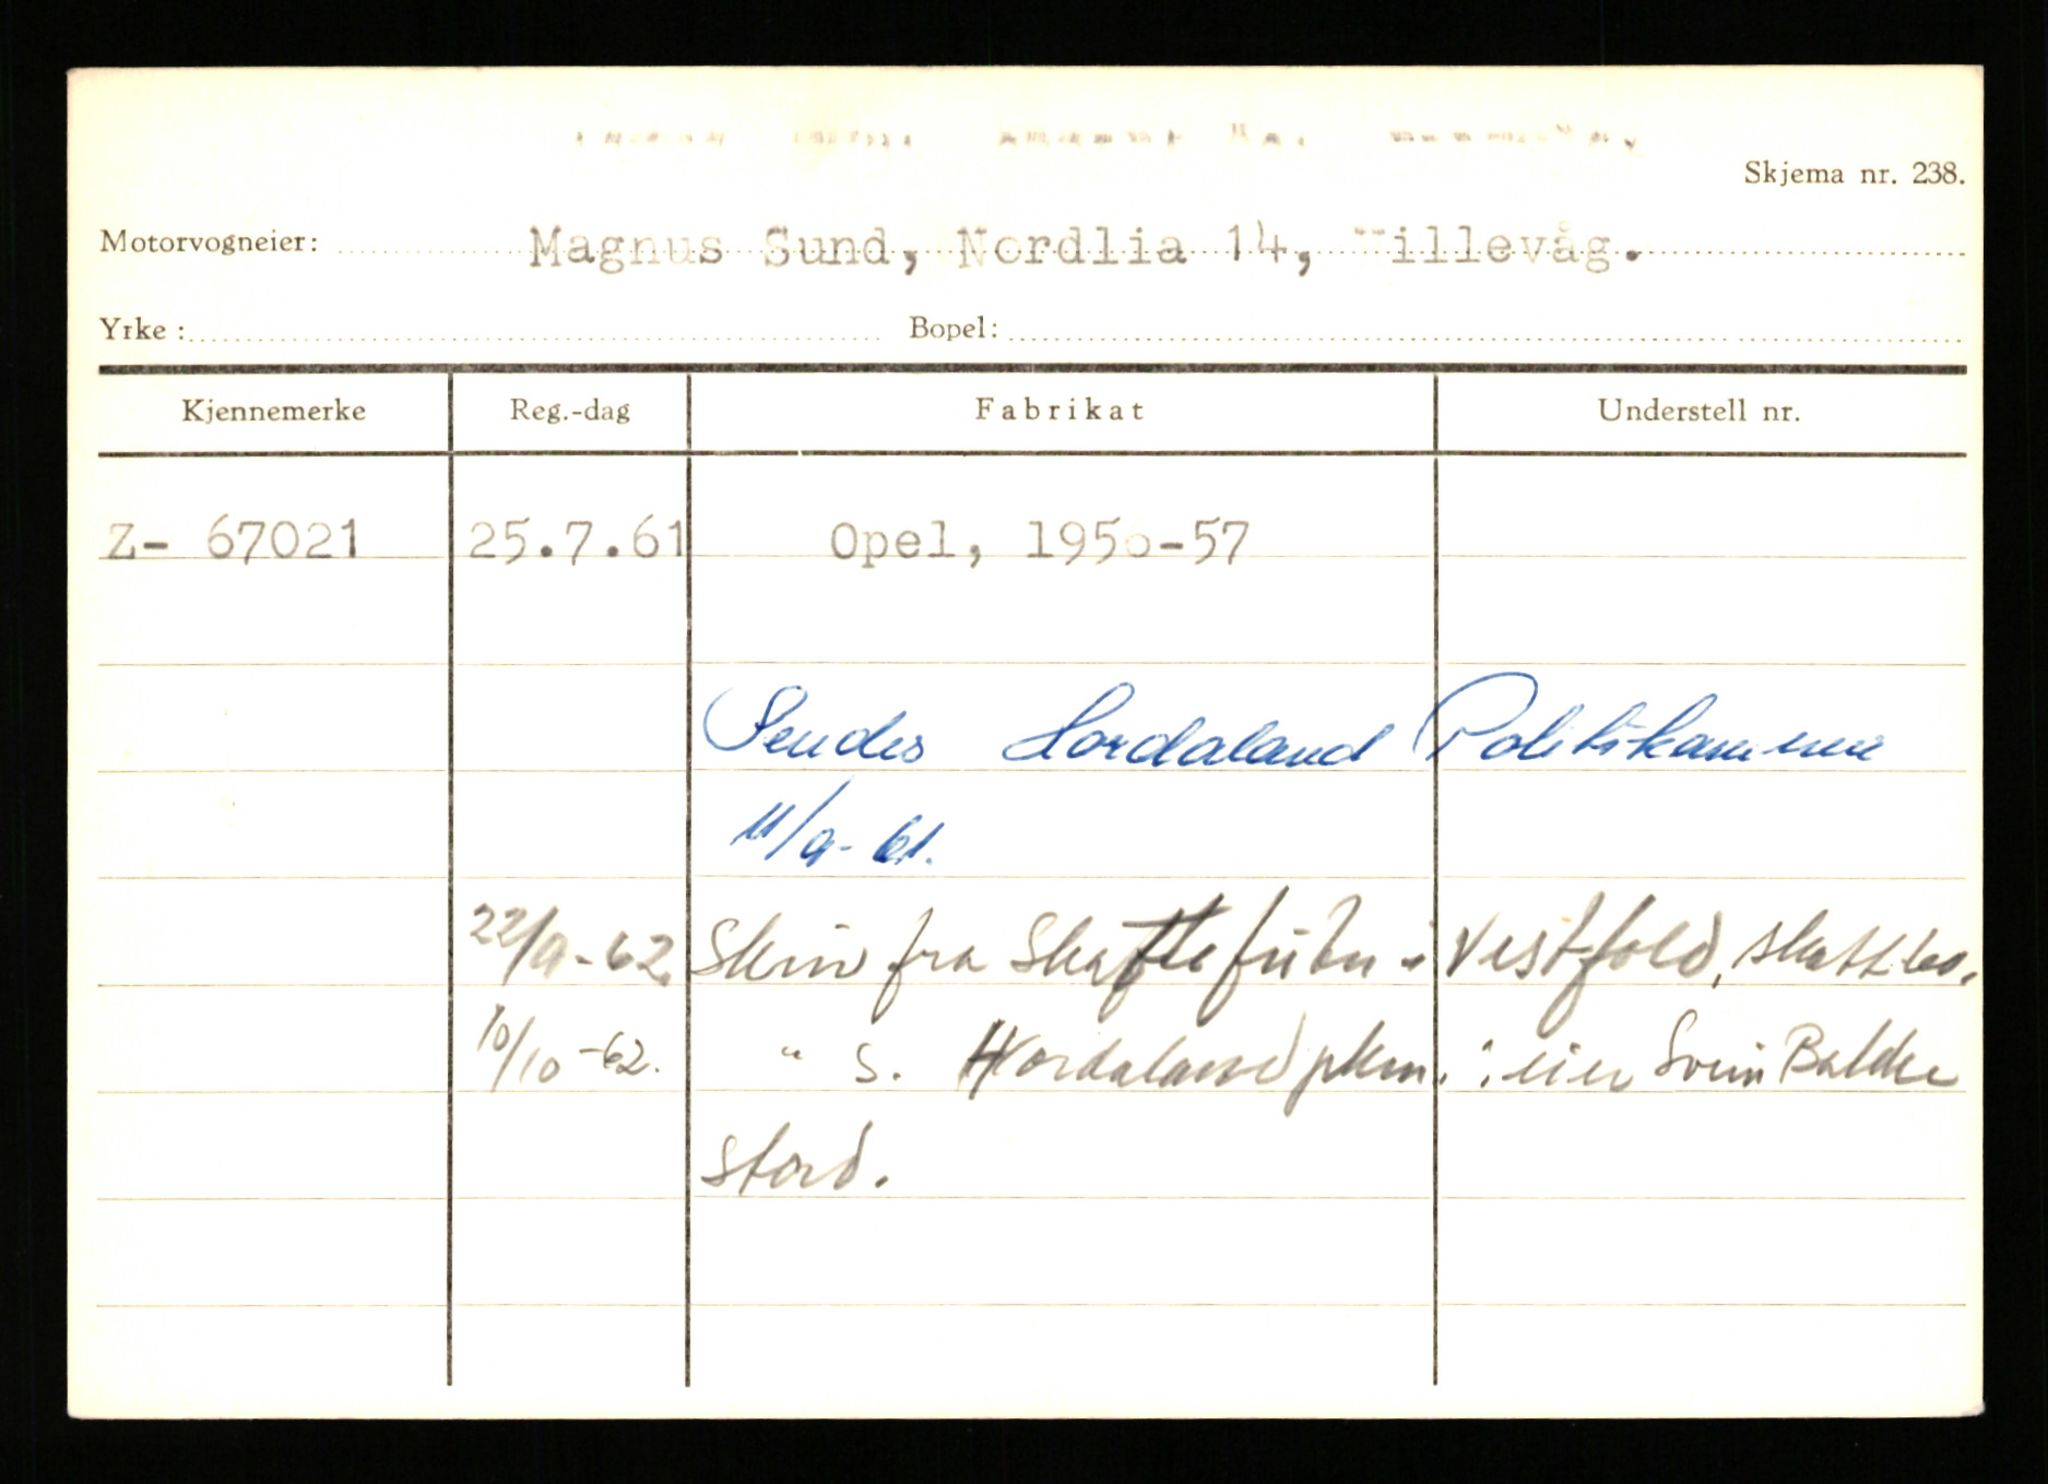 Skjema nr. 238.
Motorvogneier: Magnus Sund, Nordlia 14, Hillevåg.
Yrke : Bopel:
Kjennemerke Reg.-dag Fabrikat Understell nr.
Z- 67021 25.7.61 Opel, 1956-57
Sendes Hordaland Politikammer
11/9-61.
22/9-62. Skriv fra Skattefuten i Vestfold,
10/10-62. " s. Hordaland pkm. : eier Svein Bakke
Stord.